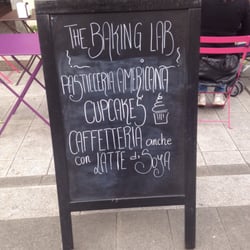 THE BAKING LAB
PASTICCERIA AMERICANA
CUPCAKES
CAFFETTERIA anche
con LATTE di SOYA